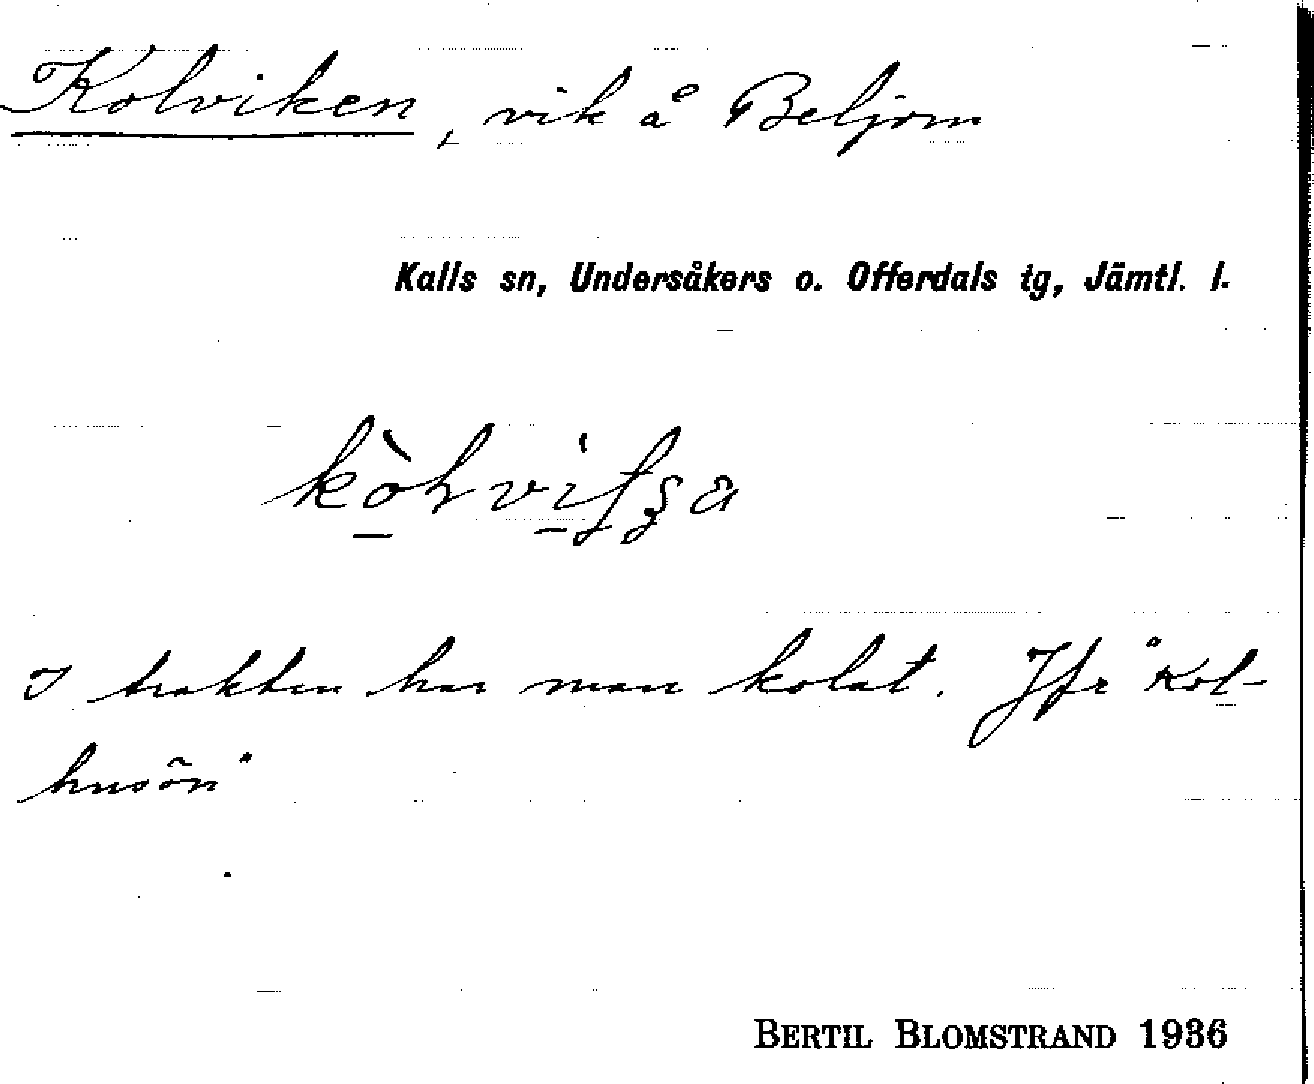 Kolviken, vik å Beljom
Kalls sn, Undersåkers o. Offerdals tg, Jämtl. l.
I trakten har man kolat. Jfr "Kol-
husön"
BERTIL BLOMSTRAND 1936